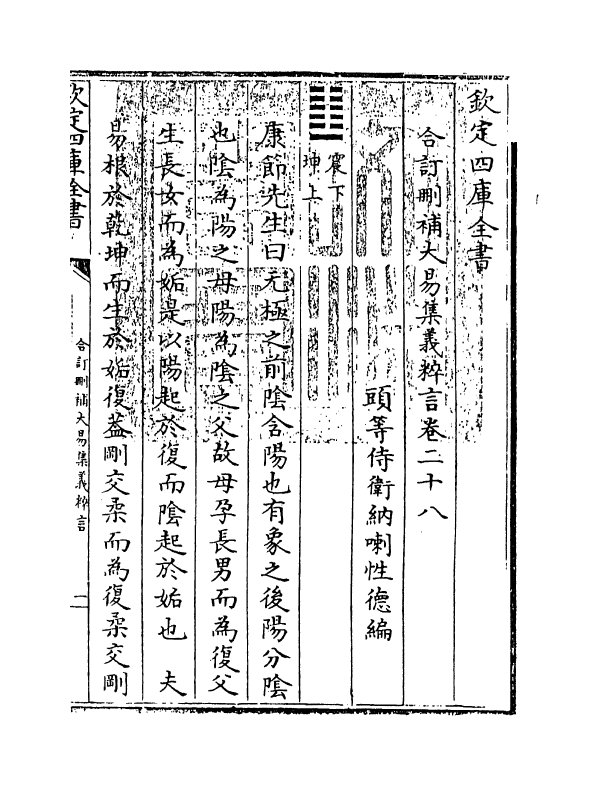 欽定四庫全書
合訂刪補大易集義粹言卷二十八
頭等侍衛納喇性德編
震下
坤上
康節先生曰无極之前陰含陽也有象之後陽分陰
也陰為陽之母陽為陰之父故母孕長男而為復父
生長女而為姤是以陽起於復而陰起於姤也　夫
易根於乾坤而生於姤復葢剛交柔而為復柔交剛
欽定四庫全書
合訂刪補大易集義粹言